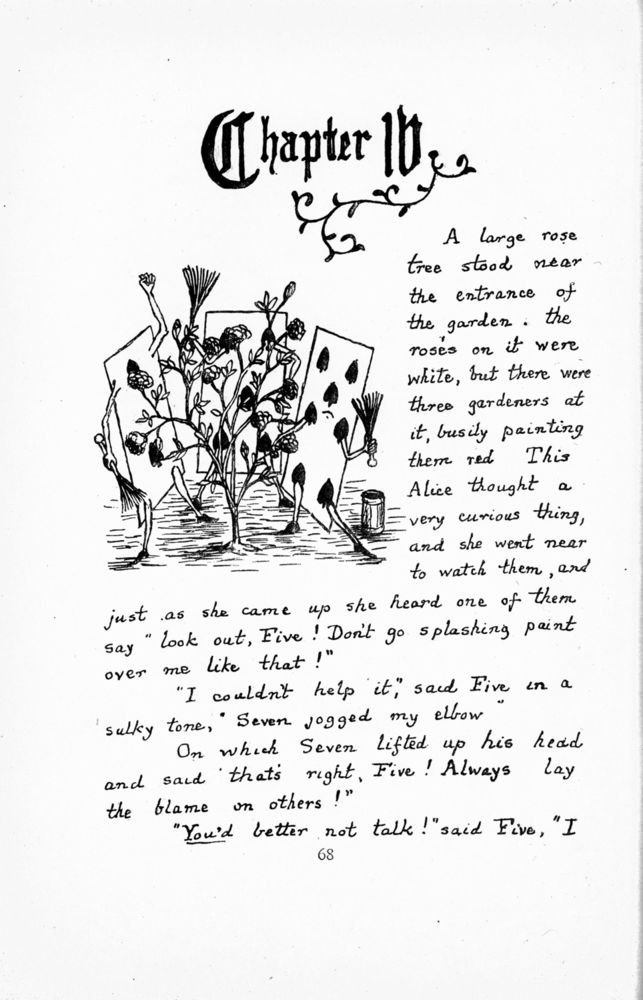 Chapter IV
A large rose
tree stood near
the entrance of
the garden. the
roses on it were
white, but there were
three gardeners at
it, busily painting
them red This
Alice thought a
very curious thing,
and she went near
to watch them, and
just as she came up she heard one of them
say "look out, Five! Don't go splashing paint
over me like that!"
"I couldn't help it," said Five in a
sulky tone, "Seven jogged my elbow"
On which Seven lifted up his head
and said "that's right, Five! Always lay
the blame on others!"
"You'd better not talk!" said Five, "I
68